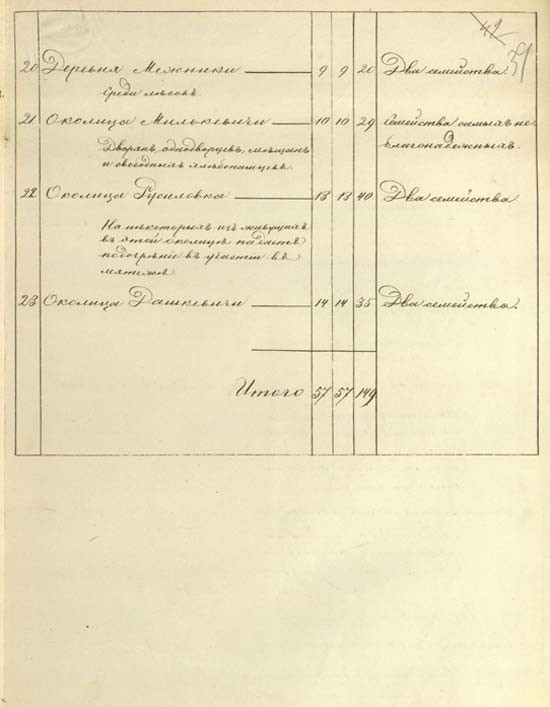 42
51
20 Деревня Межники 9 9 20 Два семейства.
среди лѣсовъ
21 Околица Милькевичи 10 10 29 Семейства самыхъ не-
Дворянъ, однодворцевъ, мѣщанъ благонадежныхъ.
и свободныхъ хлѣбопашцевъ.
22 Околица Русиловка 13 13 40 Два семейства
На нѣкоторыхъ изъ живущихъ
въ этой околицѣ падаетъ
подозрѣніе въ участіи въ
мятежѣ
23 Околица Дашкевичи 14 14 35 Два семейства.
Итого 57 57 149